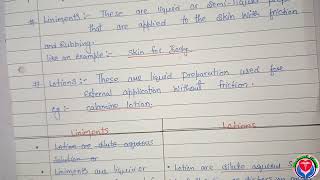 # Liniments :- These are liquid or semi-liquid prep
that are applied to the skin with friction
and Rubbing.
like an example :- Skin for Body
# Lotions :- These are liquid preparation used for
external application without friction.
eg :- calamine lotion.
Liniments Lotions
• Lotion are dilute aqueous
Solution or
• Liniments are liquid or
• Lotion are dilute aqueous S